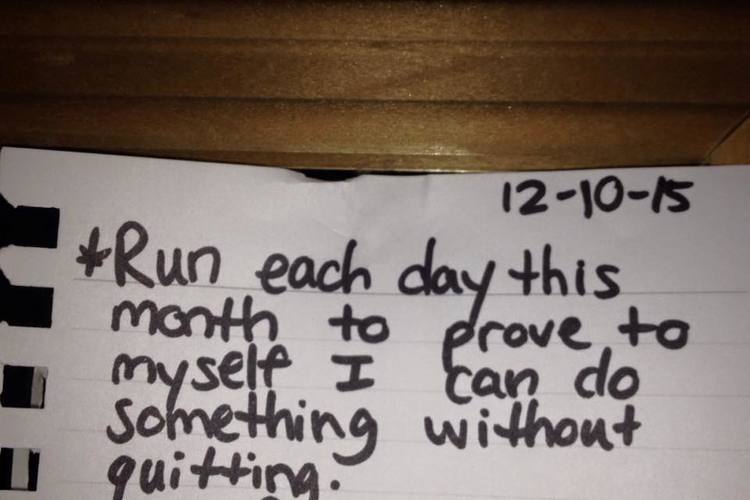 12-10-15
*Run each day this
month to prove to
myself I can do
something without
quitting.